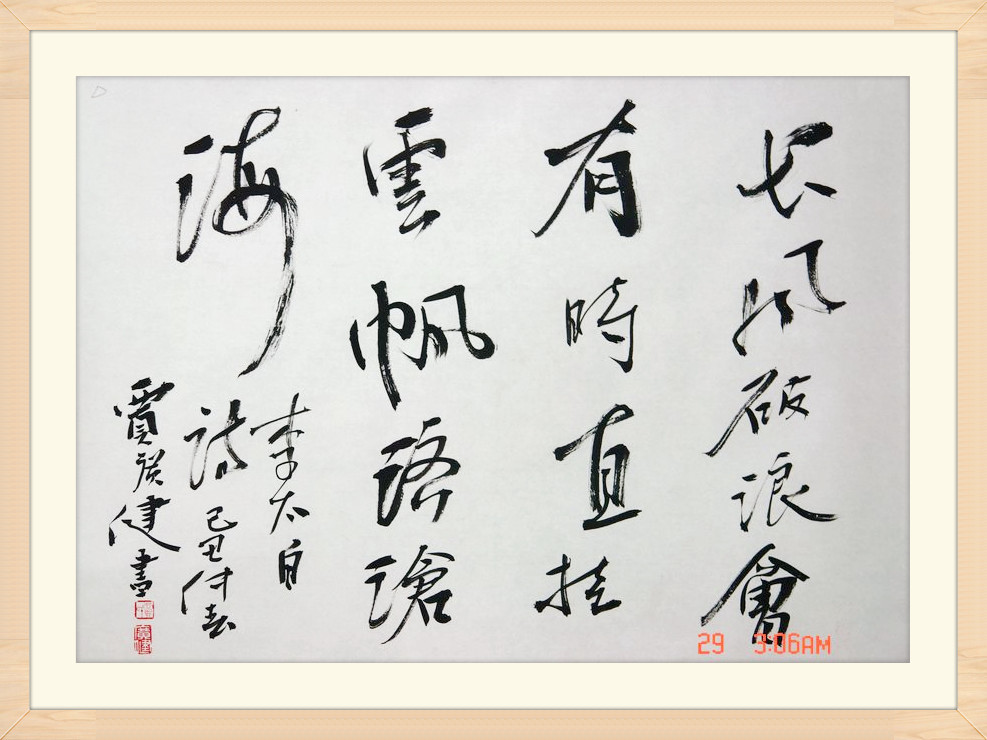 长风破浪會
有時直挂
雲帆济滄
海
李太白
詩己丑仲春
賈健書
29 3:06AM